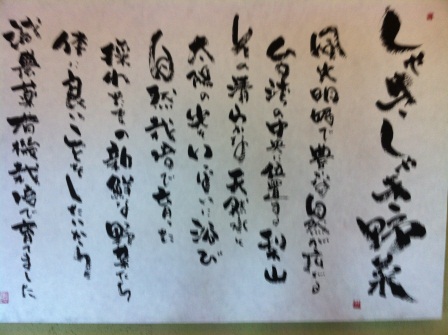 しゃきしゃき野菜
緑火明媚で豊かな自然が持たる
台湾の中央に位置する梨山
その清らかな天然水と
太陽の光をいっぱいに浴び
自然栽培で育った
採れたての新鮮な野菜たち
体に良いことをしたいから。
減農薬有機栽培で育ました